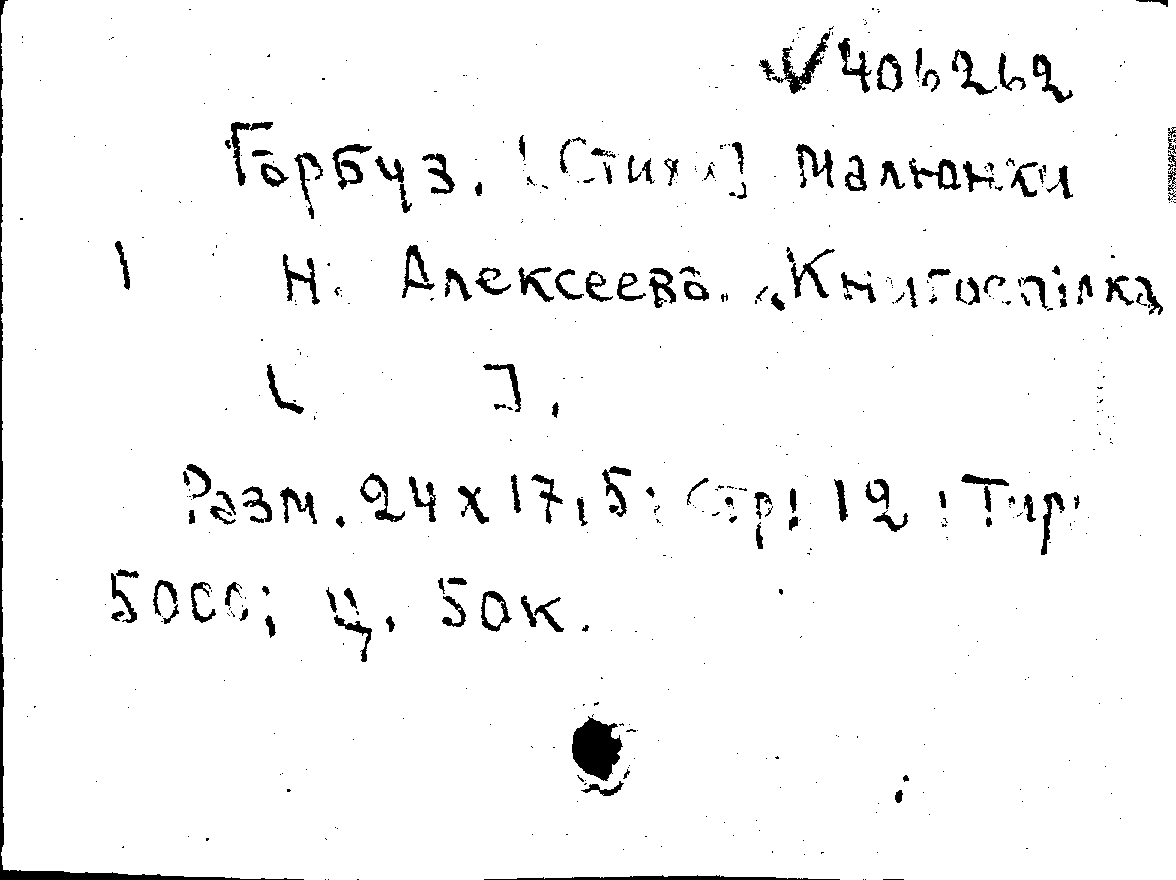 √406262
Гарбуз. [Стихи] Малюнки
1 Н. Алексеева. „Книгоспілка"
[ ].
Разм. 24х17,5; Стр: 12; Тир:
5000; Ц. 50к.